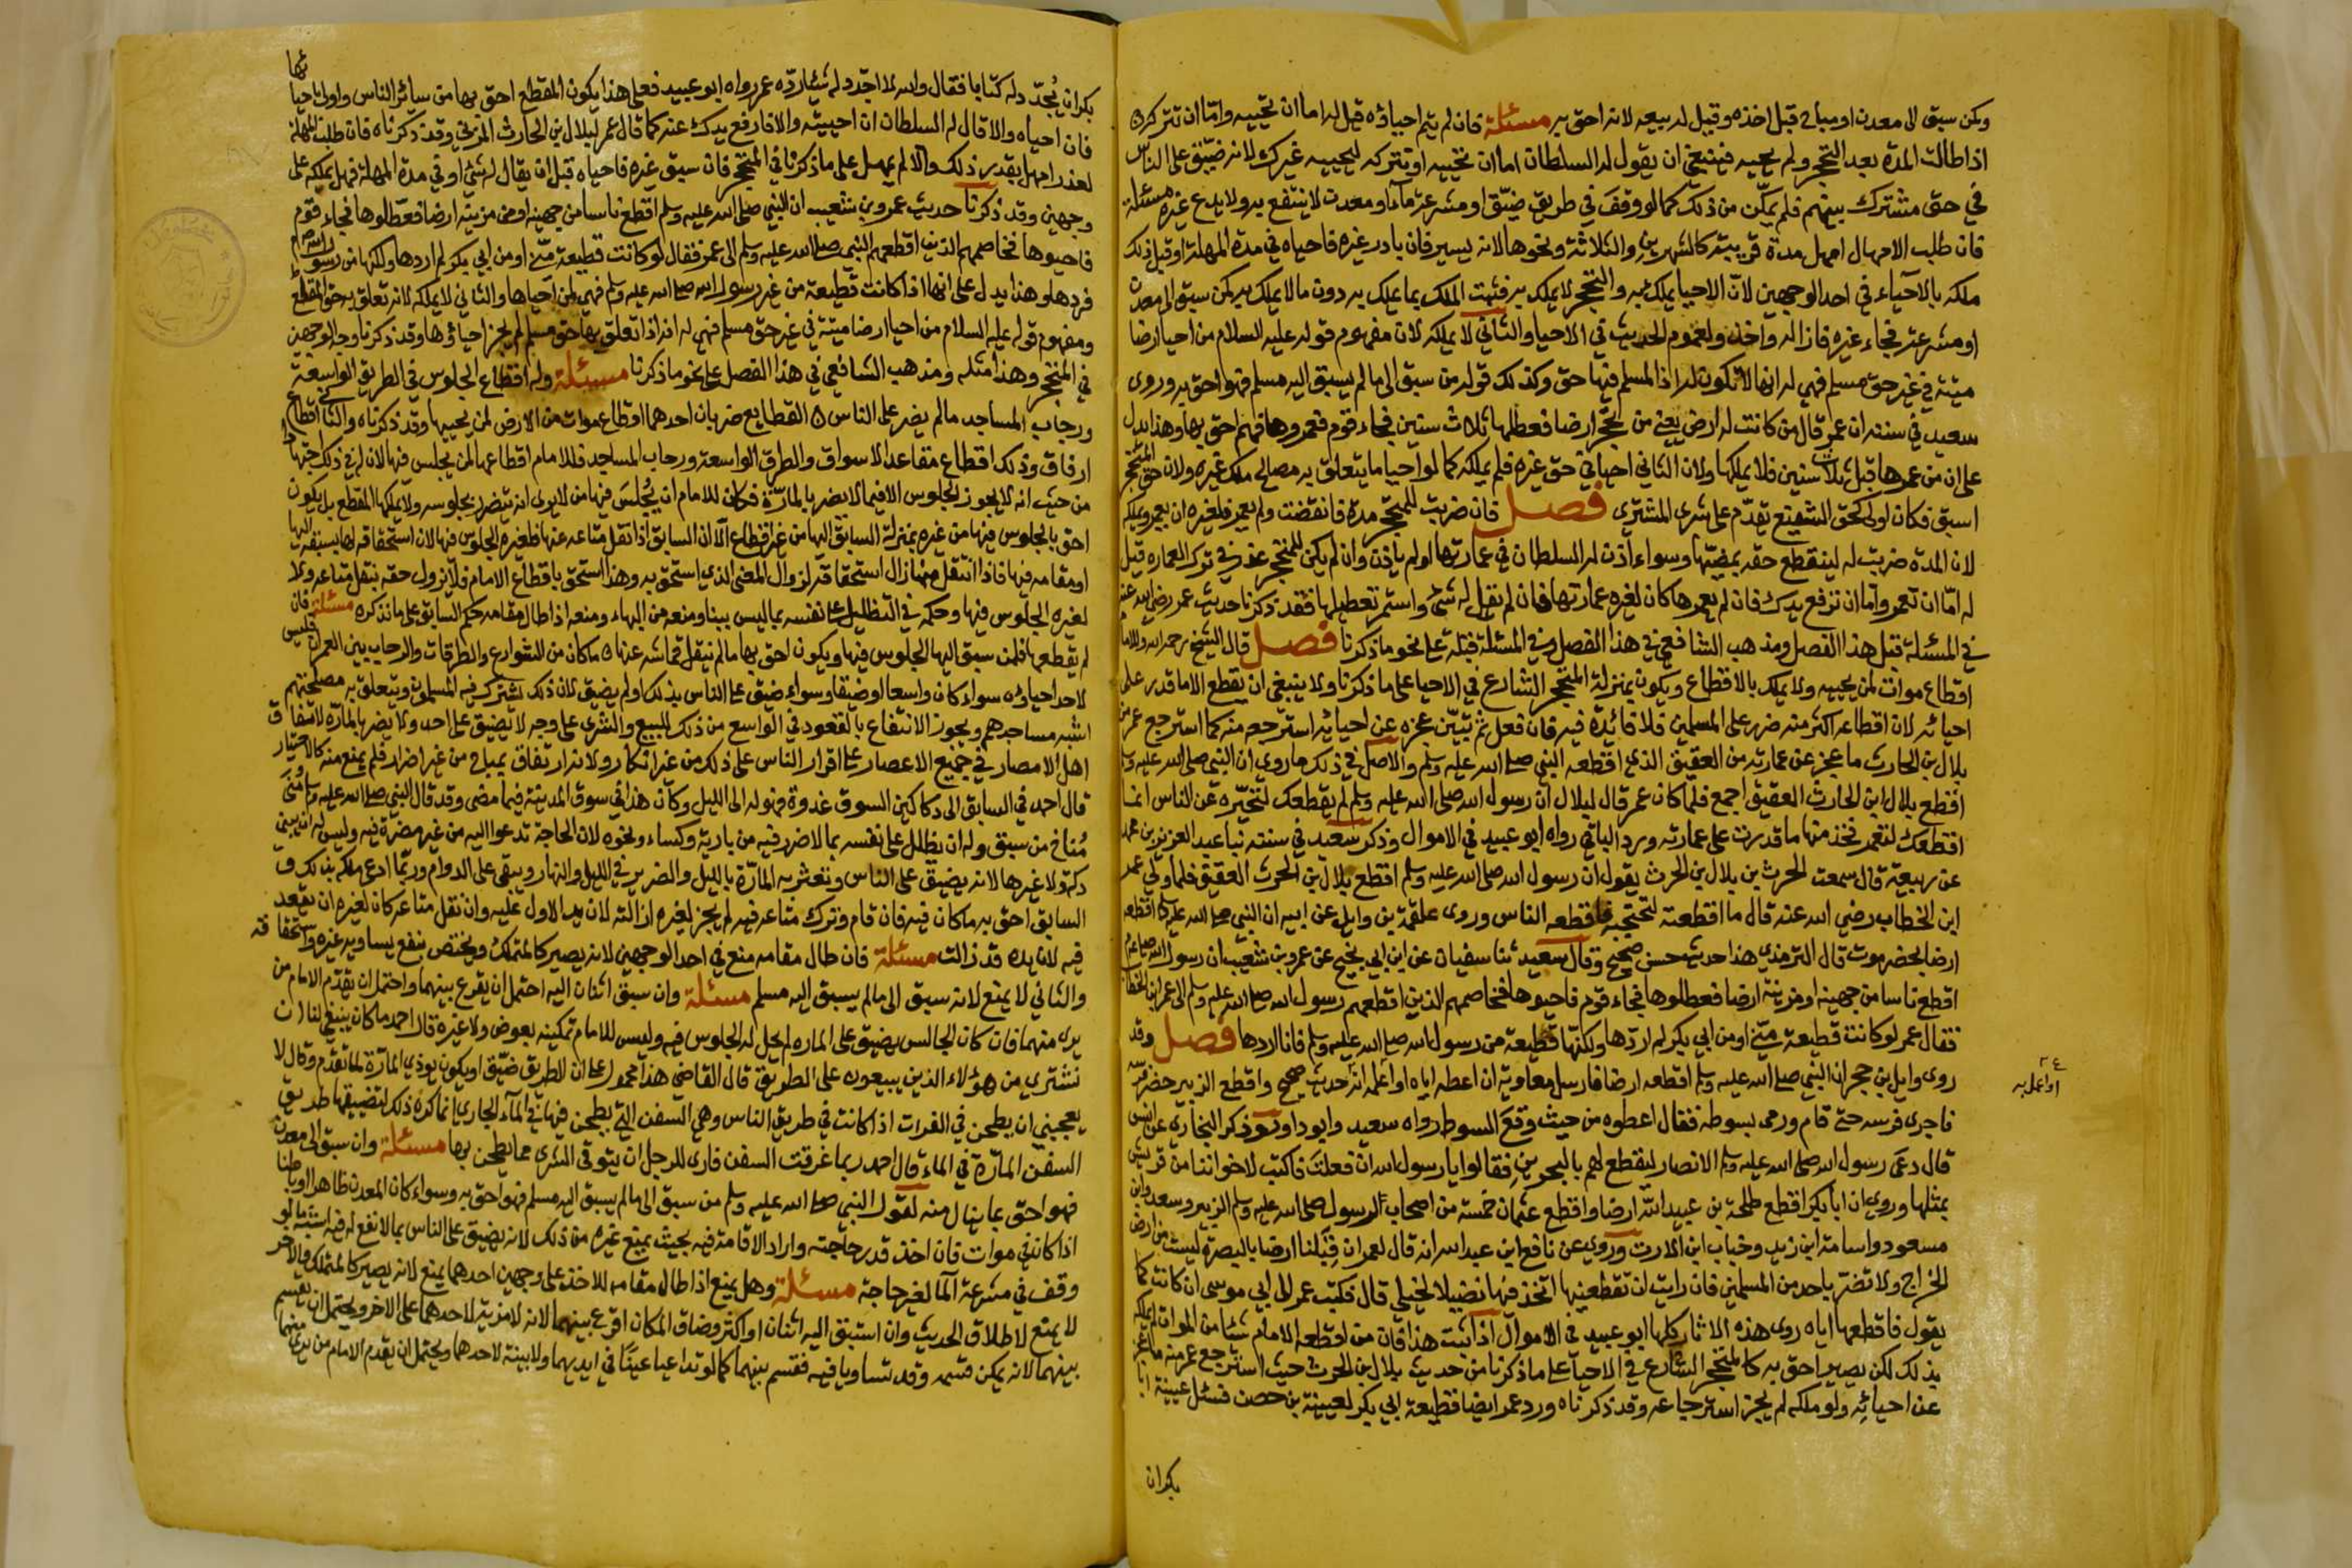 وكمن سبق الى معدن او مباح قبل اخذه وقيل له بيعه لانه احق به مسئلة فان لم يتم احياؤه قيل له اما ان تحييه واما ان تتركه
اذا طالت المدة بعد التحجر ولم يحييه فينبغي ان يقول له السلطان اما ان تحييه او تتركه ليحييه غيرك لانه ضيق على الناس
في حق مشترك بينهم فلم يمكن من ذلك كما لو وقف في طريق ضيق او مشرعة ماء او معدن لا ينتفع به ولا يدع غيره مسئلة
فان طلب الامهال امهل مدة قريبة كالشهرين والثلاثة ونحوها لانه يسير فان بادر غيره فاحياه في مدة المهلة او قبل ذلك
ملكه بالاحياء في احد الوجهين لان الاحيا يملك به والتحجر لا يملك به فثبت الملك بما يملك به دون ما لا يملك به كمن سبق الى معدن
او مشرعة فجاء غيره فازاله واخذ ولعموم الحديث في الاحيا والثاني لا يملكه لان مفهوم قوله عليه السلام من احيا ارضا
ميتة في غير حق مسلم فهي له انها لا تكون له اذا لمسلم فيها حق وكذلك قوله من سبق الى ما لم يسبق اليه مسلم فهو احق به وروى
سعيد في سننه ان عمر قال من كانت له ارض يعني من تحجر ارضا فعطلها ثلاث سنين فجاء قوم فعمروها فهم احق بها وهذا يدل
على ان من عمرها قبل ثلاث سنين فلا يملكها ولان الثاني احيا في حق غيره فلم يملكه كما لو احيا ما يتعلق به مصالح ملك غيره ولان حق المتحجر
اسبق فكان اولى كحق الشفيع تقدم على شرى المشترى فصل فان ضربت للمتحجر مدة فانقضت ولم يعمر فلغيره ان يعمر ويملكه
لان المدة ضربت له لينقطع حقه بمضيها وسواء اذن له السلطان في عمارتها او لم ياذن وان لم يكن للمتحجر عذر في ترك العماره قيل
له اما ان تعمر واما ان ترفع يدك فان لم يعمرها كان لغيره عمارتها فان لم يقل له شئ واستمر تعطيلها فقد ذكرنا حديث عمر رضى الله عنه
في المسئلة قبل هذا الفصل ومذهب الشافعي في هذا الفصل وفي المسئلة قبله على نحو ما ذكرنا فصل قال الشيخ رحمه الله وللامام
اقطاع موات لمن يحييه ولا يملك بالاقطاع ويكون بمنزلة المتحجر الشارع في الاحيا على ما ذكرنا ولا ينبغي ان يقطع الا ما قدر على
احيائه لان اقطاعه اكثر منه ضرر على المسلمين فلا فائدة فيه فان فعل ثم تبين عجزه عن احيائه استرجعه منه كما استرجع عمر من
بلال بن الحارث ما عجز عن عمارته من العقيق الذي اقطعه النبي صلى الله عليه وسلم والاصل في ذلك ما روي ان النبي صلى الله عليه وسلم
اقطع بلال ابن الحارث العقيق اجمع فلما كان عمر قال لبلال ان رسول الله صلى الله عليه وسلم لم يقطعك لتحجره عن الناس انما
اقطعك لتعمر فخذ منها ما قدرت على عمارته ورد الباقي رواه ابو عبيد في الاموال وذكر سعيد في سننه ثنا عبد العزيز بن محمد
عن ربيعة قال سمعت الحرث بن بلال بن الحرث يقول ان رسول الله صلى الله عليه وسلم اقطع بلال بن الحرث العقيق فلما ولي عمر
ابن الخطاب رضي الله عنه قال ما اقطعته لتحتجبه فاقطعه الناس وروى علقمة بن وايل عن ابيه ان النبي صلى الله عليه وسلم اقطعه
ارضا بحضرموت قال الترمذي هذا حديث حسن صحيح وقال سعيد ثنا سفيان عن ابن ابي نجيح عن عمرو بن شعيب ان رسول الله صلى الله عليه وسلم
اقطع ناسا من جهينة او مزينة ارضا فعطلوها فجاء قوم فاحيوها فخاصمهم الذين اقطعهم رسول الله صلى الله عليه وسلم الى عمر ابن الخطاب
فقال عمر لو كانت قطيعة مني او من ابي بكر لم اردها ولكنها قطيعة من رسول الله صلى الله عليه وسلم فانا اردها فصل وقد
روى وايل بن حجر ان النبي صلى الله عليه وسلم اقطعه ارضا فارسل معاوية ان اعطه اياه او اعلمه انه حديث صحيح واقطع الزبير حضر فرسه
فاجرى فرسه حتى قام ورمى بسوطه فقال اعطوه من حيث وقع السوط رواه سعيد وابو داود وذكر البخاري عن انس
قال دعى رسول الله صلى الله عليه وسلم الانصار ليقطع لهم بالبحرين فقالوا يا رسول الله ان فعلت فاكتب لاخواننا من قريش
بمثلها وروي ان ابا بكر اقطع طلحة بن عبيد الله ارضا واقطع عثمان خمسة من اصحاب الرسول صلى الله عليه وسلم الزبير وسعد وابن
مسعود واسامة ابن زيد وخباب ابن الارت وروي عن نافع ابن عبد الله انه قال لعمر ان قبلنا ارضا بالبصرة ليست من ارض
الخراج ولا تضر باحد من المسلمين فان رايت ان تقطعنيها اتخذ فيها قضبا لخيلي قال فكتب عمر الى ابي موسى ان كانت كما
يقول فاقطعها اياه روى هذه الاثار كلها ابو عبيد في الاموال اذا ثبت هذا فان من اقطعه الامام شئا من الموات لم يملكه
بذلك لكن يصير احق به كالمتحجر الشارع في الاحيا على ما ذكرنا من حديث بلال ابن الحرث حيث استرجع عمر منه ما عجز
عن احيائه ولو ملكه لم يجز استرجاعه وقد ذكرناه ورد عمر ايضا قطيعة ابي بكر لعيينة بن حصن فسئل عيينة ابا
بكر ان
او اعلمه
بكر ان يجدد له كتابا فقال والله لا اجدد له شيئا رده عمر رواه ابو عبيد فعلى هذا يكون المقطع احق بها من سائر الناس واولى باحيائها
فان احياه والا قال له السلطان ان احييته والا فارفع يدك عنه كما قال عمر لبلال بن الحارث المزني وقد ذكرناه فان طلب المهلة
لعذر امهل بقدر ذلك والا لم يمهل على ما ذكرنا في المتحجر فان سبق غيره فاحياه قبل ان يقال له شئ او في مدة المهلة فهل يملكه على
وجهين وقد ذكرنا حديث عمرو بن شعيب ان النبي صلى الله عليه وسلم اقطع ناسا من جهينه او من مزينه ارضا فعطلوها فجاء قوم
فاحيوها فخاصمهم الذين اقطعهم النبي صلى الله عليه وسلم الى عمر فقال لو كانت قطيعة مني او من ابي بكر لم اردها ولكنها من رسول الله صلى الله عليه وسلم
فردها وهذا يدل على انها اذا كانت قطيعة من غير رسول الله صلى الله عليه وسلم فهي لمن احياها والثاني لا يملكه لانه تعلق به حق المقطع
ومفهوم قوله عليه السلام من احيا ارضا ميتة في غير حق مسلم فهي له انه اذا تعلق بها حق مسلم لم يجز احياؤها وقد ذكرنا وجه الوجهين
في المتحجر وهذا مثله ومذهب الشافعي في هذا الفصل على نحو ما ذكرنا مسئلة وله اقطاع الجلوس في الطريق الواسعة
ورحاب المساجد ما لم يضر على الناس القطايع ضربان احدهما اقطاع موات من الارض لمن يحييها وقد ذكرناه والثاني اقطاع
ارفاق وذلك اقطاع مقاعد الاسواق والطرق الواسعة ورحاب المساجد فللامام اقطاعها لمن يجلس فيها لان له في ذلك اجتهادا
من حيث انه لا يجوز الجلوس الا فيما لا يضر بالمارة فكان للامام ان يجلس فيها من لا يرى انه يتضرر بجلوسه ولا يملكها المقطع بل يكون
احق بالجلوس فيها من غيره بمنزلة السابق اليها من غير اقطاع الا ان السابق اذا نقل متاعه عنها فلغيره الجلوس فيها لان استحقاقه لها بسبقه اليها
او مقامه فيها فاذا انتقل عنها زال استحقاقه لزوال المعنى الذي استحق به وهذا استحق باقطاع الامام فلا يزول حقه بنقل متاعه ولا
لغيره الجلوس فيها وحكمه في التظليل على نفسه بما ليس ببنا ومنعه من البناء ومنعه اذا طال مقامه حكم السابق على ما نذكره مسئلة فان
لم يقطعها فلمن سبق اليها الجلوس فيها ويكون احق بها ما لم ينقل قماشه عنها ما كان من الشوارع والطرقات والرحاب بين العمران فليس
لاحد احياؤه سواء كان واسعا او ضيقا وسواء ضيق على الناس بذلك او لم يضيق لان ذلك يشترك فيه المسلمون ويتعلق به مصلحتهم
اشبه مساجدهم ويجوز الانتفاع بالقعود في الواسع من ذلك للبيع والشرى على وجه لا يضيق على احد ولا يضر بالمارة لاتفاق
اهل الامصار في جميع الاعصار على اقرار الناس على ذلك من غير انكار ولانه ارتفاق بمباح من غير اضرار فلم يمنع منه كالاجتياز
قال احمد في السابق الى دكاكين السوق غدوة فهو له الى الليل وكان هذا في سوق المدينة فيما مضى وقد قال النبي صلى الله عليه وسلم منى
مناخ من سبق وله ان يظلل على نفسه بما لا ضرر فيه من بارية وكساء ونحوه لان الحاجة تدعوا اليه من غير مضرة فيه وليس له ان يبني
دكة ولا غيرها لانه يضيق على الناس وتعثر به المارة بالليل والضرير في الليل والنهار ويبقى على الدوام وربما ادعى ملكه بذلك و
السابق احق به ما كان فيه فان قام وترك متاعه فيه لم يجز لغيره ازالته لان يد الاول عليه وان نقل متاعه كان لغيره ان يقعد
فيه لان يده قد زالت مسئلة فان طال مقامه منع في احد الوجهين لانه يصير كالمتملك ويختص بنفع يساويه غيره واستحقاقه
والثاني لا يمنع لانه سبق الى ما لم يسبق اليه مسلم مسئلة وان سبق اثنان اليه احتمل ان يقرع بينهما واحتمل ان يقدم الامام من
يرى منهما فان كان الجالس يضيق على الماره لم يحل له الجلوس فيه وليس للامام تمكينه بعوض ولا غيره قال احمد ما كان ينبغي لنا ان
نشتري من هؤلاء الذين يبيعون على الطريق قال القاضي هذا محمول على ان الطريق ضيق او يكون يوذي المارة لما تقدم وقال لا
يعجبني ان يطحن في الغرات اذا كانت في طريق الناس وهي السفن التي يطحن فيها في الماء الجاري انما كره ذلك لتضييقها طريق
السفن المارة في الماء قال احمد ربما غرقت السفن فارى للرجل ان يتوقى الشرى مما يطحن بها مسئلة وان سبق الى معدن
فهو احق بما ينال منه لقول النبي صلى الله عليه وسلم من سبق الى ما لم يسبق اليه مسلم فهو احق به وسواء كان المعدن ظاهرا او باطنا
اذا كان في موات فان اخذ قدر حاجته واراد الاقامة فيه بحيث يمنع غيره من ذلك لانه يضيق على الناس بما لا نفع له فيه اشبه ما لو
وقف في مشرعة الما لغير حاجة مسئلة وهل يمنع اذا طال مقامه للاخذ على وجهين احدهما يمنع لانه يصير كالمتملك والاخر
لا يمنع لاطلاق الحديث وان استبق اليه اثنان او اكثر وضاق المكان اقرع بينهما لانه لا مزية لاحدهما على الاخر ويحتمل ان يقسم
بينهما لانه يمكن قسمه وقد تساويا فيه فقسم بينهما كما لو تداعيا عينا في ايديهما ولا بينة لاحدهما ويحتمل ان يقدم الامام من يرى منهما